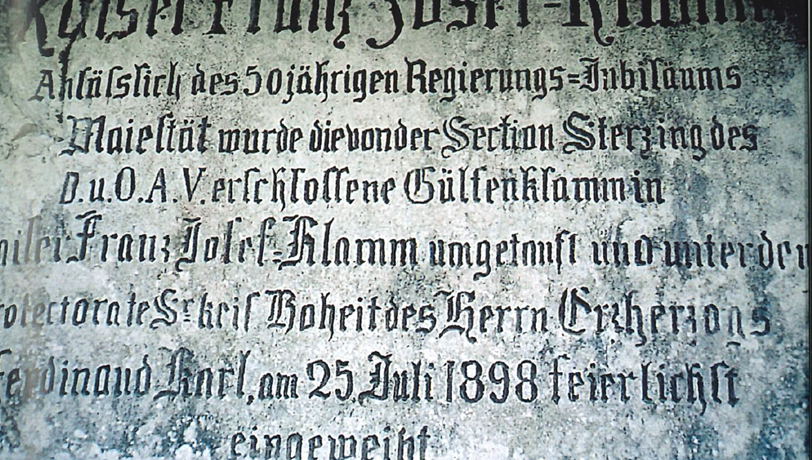 Kaiser Franz Josef-Klamm
Anläſslich des 50jährigen Regierungs=Jubiläums
Majeſtät wurde die von der Section Sterzing des
D.u.O.A.V. erſchloſſene Gülfenklamm in
aiſer Franz Joſef=Klamm umgetauft und unter dem
rotectorate Sr keiſ Hoheit des Herrn Erzherzogs
Ferdinand Karl, am 25. Juli 1898 feierlichſt
eingeweiht